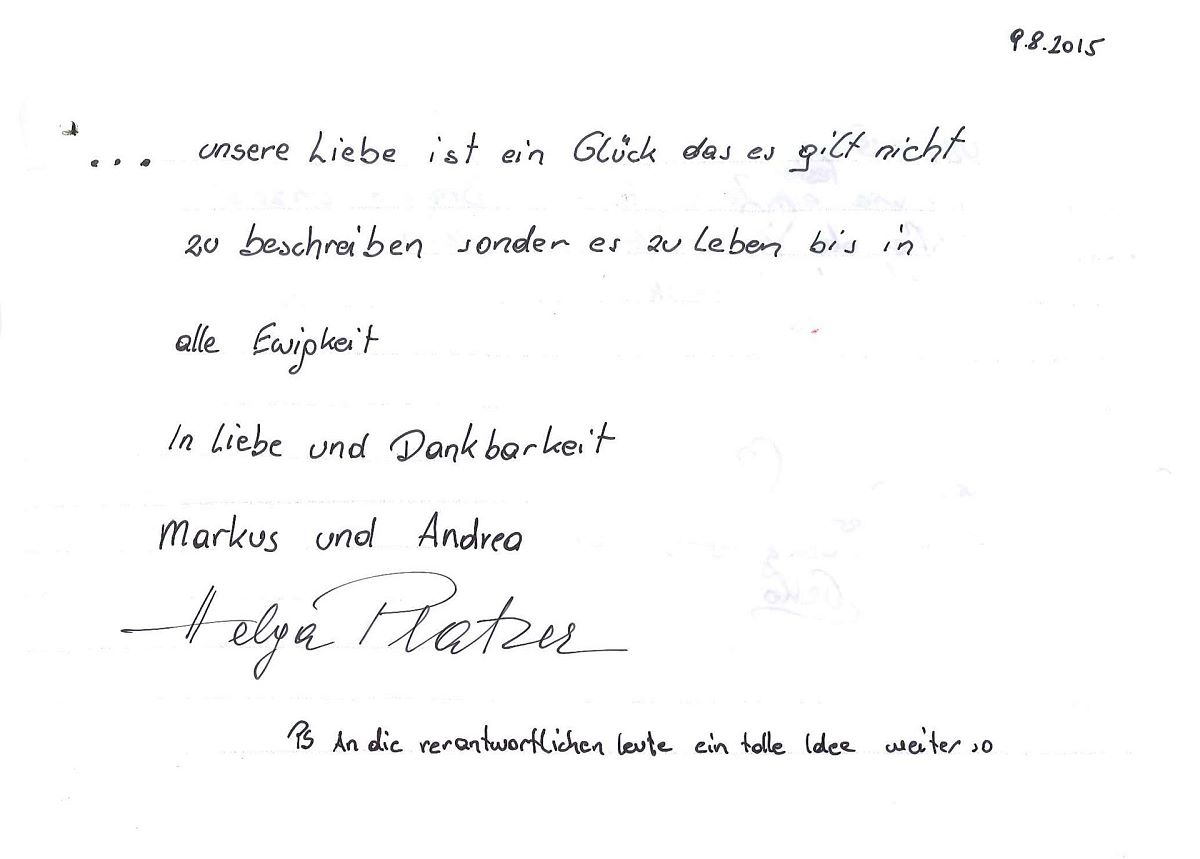 9.8.2015
... unsere Liebe ist ein Glück das es gilt nicht
zu beschreiben sonder es zu Leben bis in
alle Ewigkeit
In Liebe und Dankbarkeit
Markus und Andrea
Helga Platzer
PS An die verantwortlichen leute ein tolle Idee weiter so